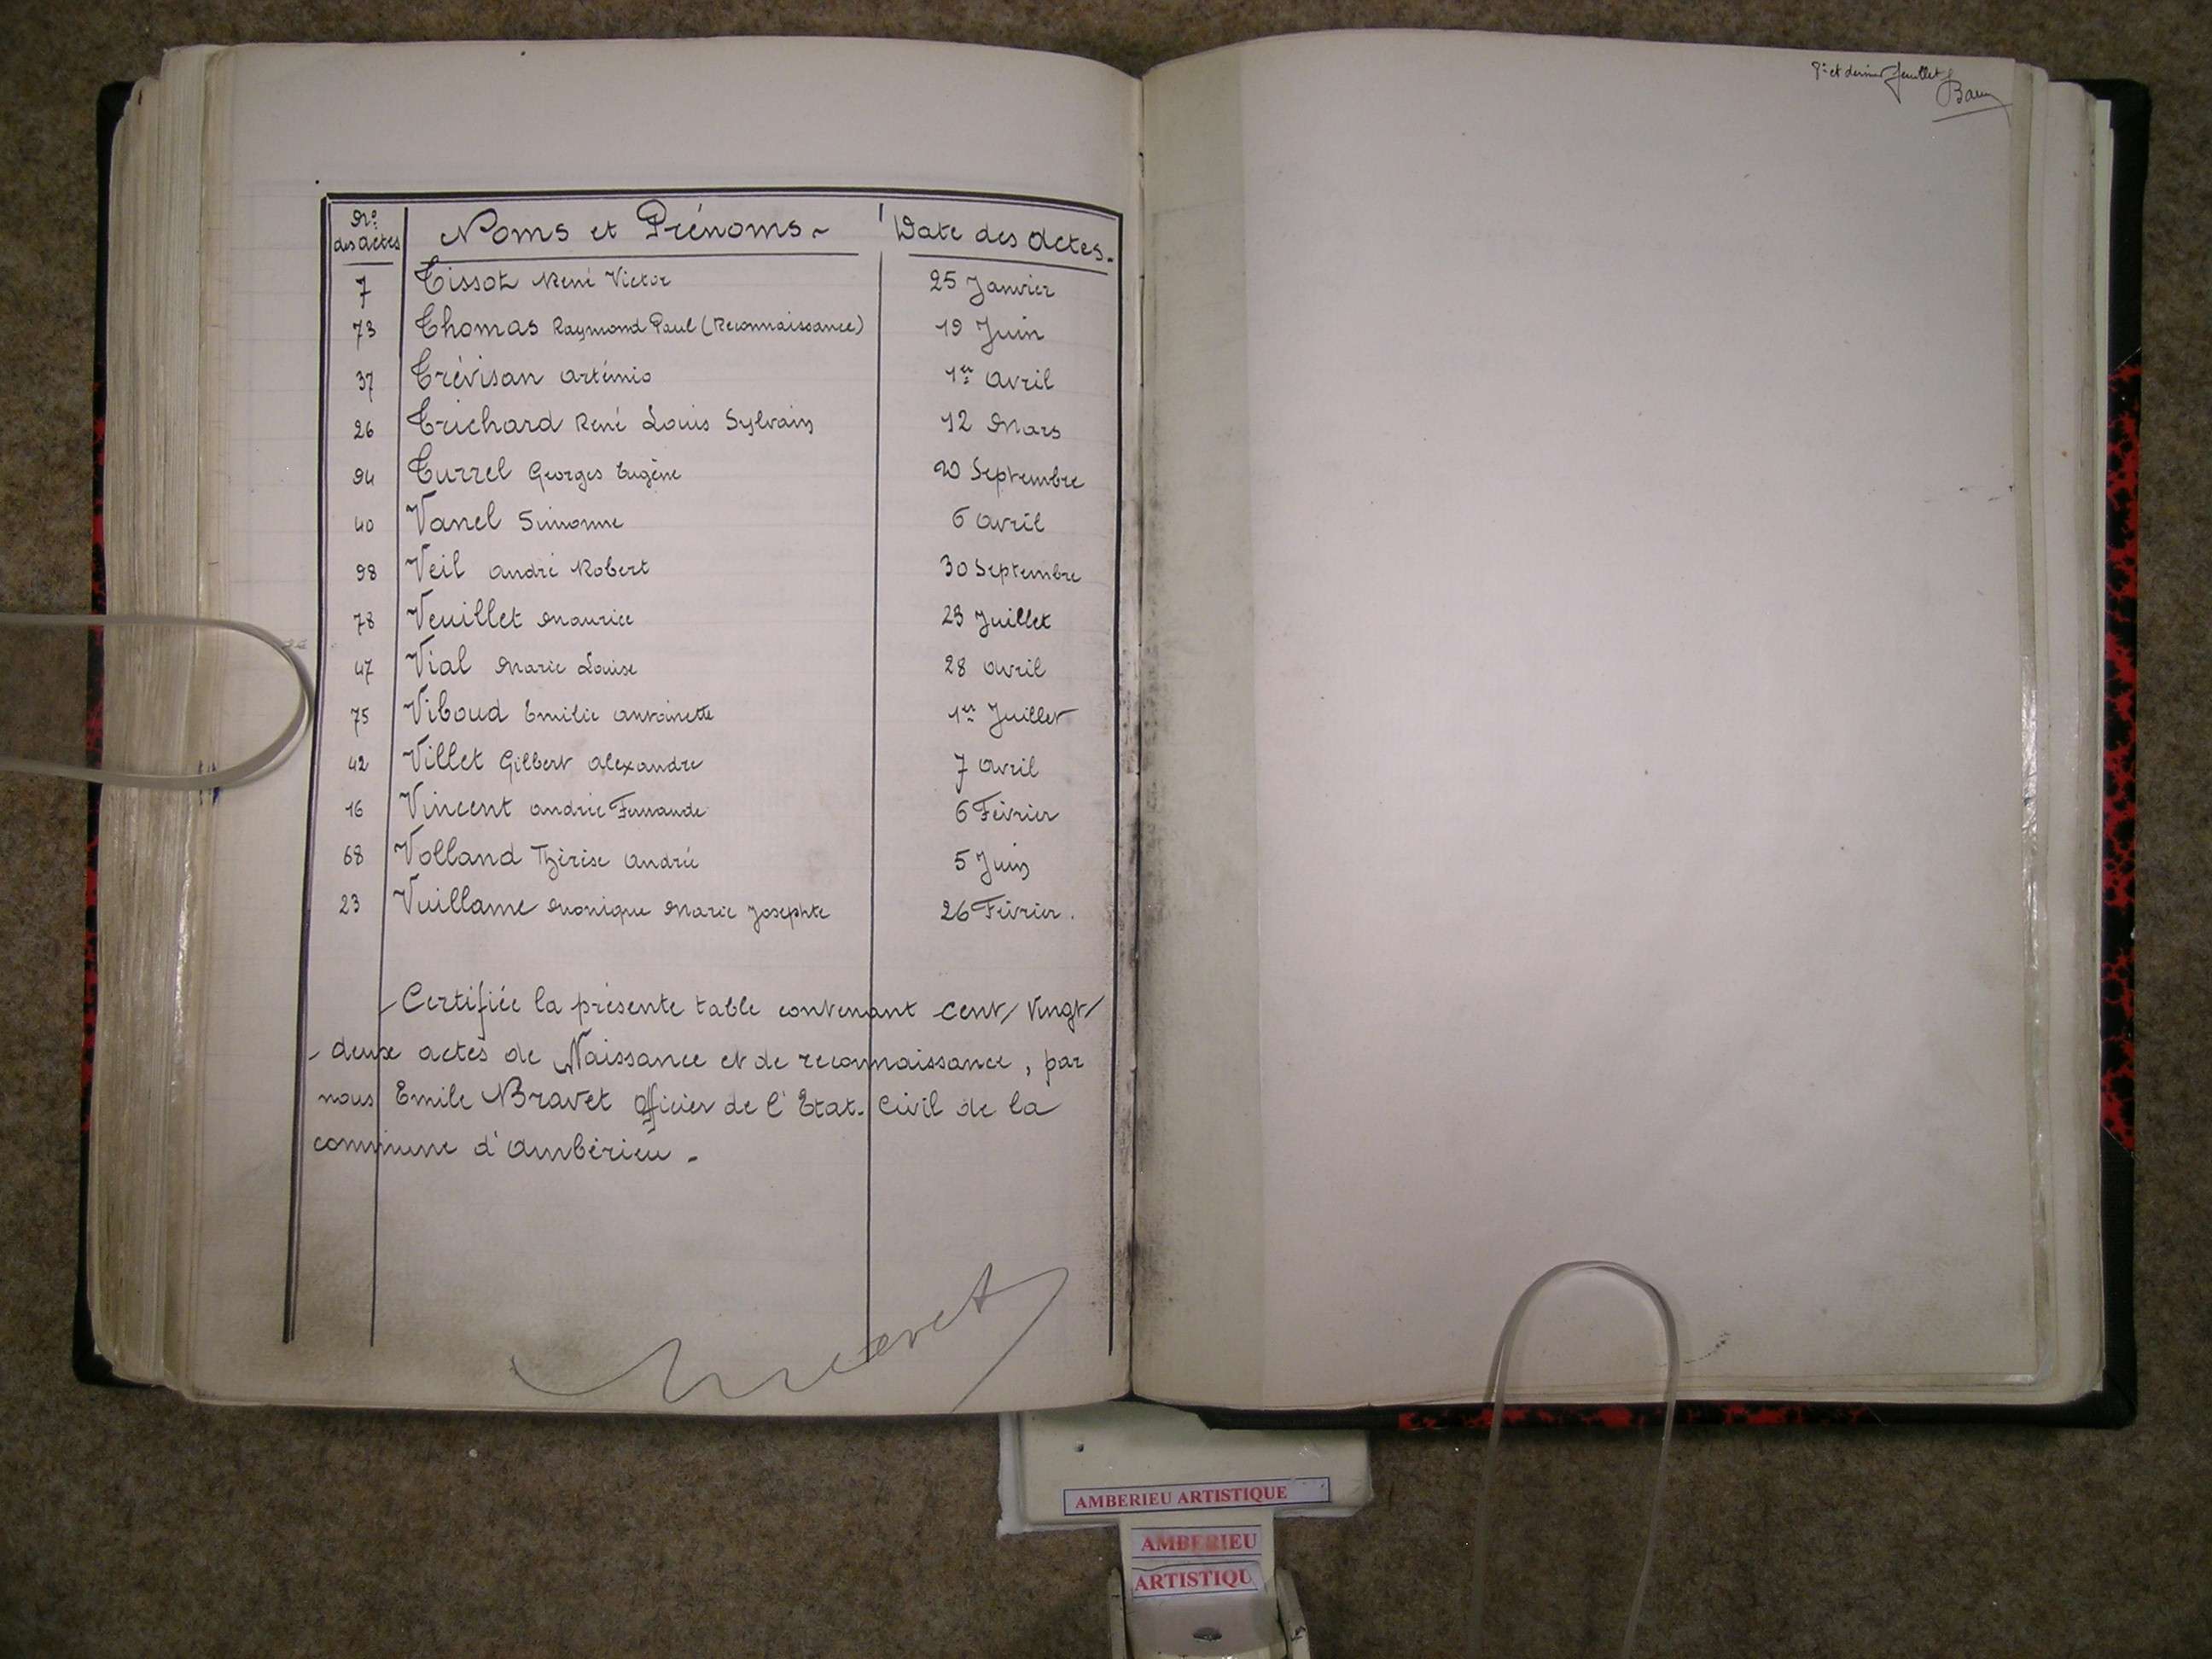 8e et dernier feuillet
Nos des actes Noms et Prénoms Date des Actes.
7 Tissot René Victor 25 Janvier
73 Thomas Raymond Paul (Reconnaissance) 19 Juin
37 Trévisan Artémio 1er Avril
26 Trichard René Louis Sylvain 12 Mars
94 Turrel Georges Eugène 20 Septembre
40 Vanel Simonne 6 Avril
98 Veil André Robert 30 Septembre
78 Veuillet Maurice 23 Juillet
47 Vial Marie Louise 28 Avril
75 Viboud Emilie Antoinette 1er Juillet
42 Villet Gilbert Alexandre 7 Avril
16 Vincent Andrée Fernande 6 Février
68 Volland Thérèse Andrée 5 Juin
23 Vuillame Monique Marie Josephte 26 Février.
Certifiée la présente table contenant cent/vingt/
deux actes de Naissance et de reconnaissance, par
nous Emile Bravet Officier de l'Etat-Civil de la
commune d'Ambérieu -
Bravet
AMBERIEU ARTISTIQUE
AMBERIEU
ARTISTIQU